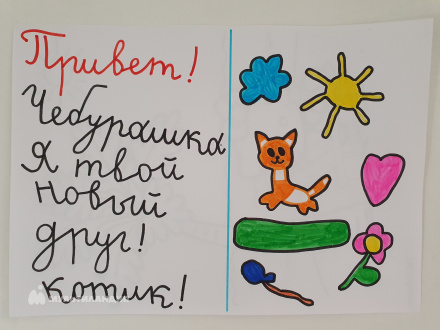 Привет!
Чебурашка
Я твой
новый
друг!
котик!